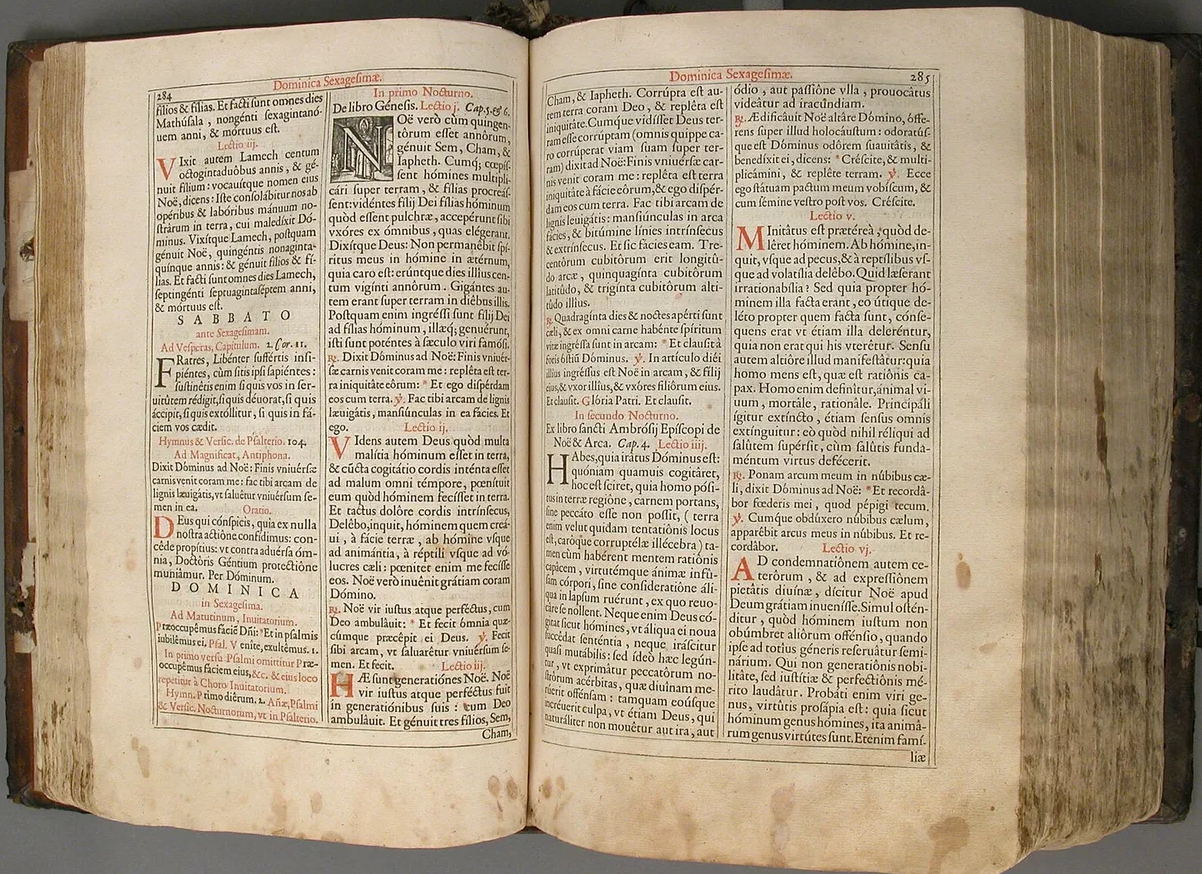 284
Dominica Sexagesimæ.
filios & filias. Et facti sunt omnes dies
Mathúsala, nongénti sexagintanó-
uem anni, & mórtuus est.
Lectio iij.
VIxit autem Lamech centum
octogintaduóbus annis, & gé-
nuit filium: vocauítque nomen eius
Noë, dicens: Iste consolábitur nos ab
opéribus & labóribus mánuum no-
strárum in terra, cui maledíxit Dó-
minus. Vixítque Lamech, postquam
génuit Noë, quingéntis nonaginta-
quínque annis: & génuit filios & fí-
lias. Et facti sunt omnes dies Lamech,
septingénti septuagintaseptem anni,
& mórtuus est.
SABBATO
ante Sexagesimam.
Ad Vesperas, Capitulum. 2. Cor. 11.
FRatres, Libénter suffértis insi-
piéntes, cùm sitis ipsi sapiéntes:
sustinétis enim si quis vos in ser-
uitútem rédigit, si quis déuorat, si quis
áccipit, si quis extóllitur, si quis in fá-
ciem vos cædit.
Hymnus & Versic. de Psalterio. 104.
Ad Magnificat, Antiphona.
Dixit Dóminus ad Noë: Finis vniuérsæ
carnis venit coram me: fac tibi arcam de
lignis læuigátis, vt saluétur vniuérsum se-
men in ea.
Oratio.
DEus qui cónspicis, quia ex nulla
nostra actióne confídimus: con-
céde propítius: vt contra aduérsa óm-
nia, Doctóris Géntium protectióne
muniámur. Per Dóminum.
DOMINICA
in Sexagesima.
Ad Matutinum, Inuitatorium.
Præoccupémus faciē Dñi: *Et in psalmis
iubilémus ei. Psal. Venite, exultémus. 1.
In primo versu Psalmi omittitur Præ-
occupémus faciem eius, &c. & eius loco
repetitur à Choro Inuitatorium.
Hymn. Primo diérum. 2. Añæ, Psalmi
& Versic. Nocturnorum, vt in Psalterio.
In primo Nocturno.
De libro Génesis. Lectio j. Cap. 5. & 6.
NOë verò cùm quingen-
tórum esset annórum,
génuit Sem, Cham, &
Iapheth. Cumq; cœpís-
sent hómines multipli-
cári super terram, & fílias procreás-
sent: vidéntes filij Dei fílias hóminum
quòd essent pulchræ, accepérunt sibi
vxóres ex ómnibus, quas elégerant.
Dixítque Deus: Non permanébit spí-
ritus meus in hómine in ætérnum,
quia caro est: erúntque dies illíus cen-
tum vigínti annórum. Gigántes au-
tem erant super terram in diébus illis.
Postquam enim ingréssi sunt filij Dei
ad fílias hóminum, illæq; genuérunt,
isti sunt poténtes à sæculo viri famósi.
℟. Dixit Dóminus ad Noë: Finis vniuér-
sæ carnis venit coram me: repléta est ter-
ra iniquitáte eórum: * Et ego dispérdam
eos cum terra. ℣. Fac tibi arcam de lignis
læuigátis, mansiúnculas in ea fácies. Et
ego.
Lectio ij.
VIdens autem Deus quòd multa
malítia hóminum esset in terra,
& cūcta cogitátio cordis inténta esset
ad malum omni témpore, pœnítuit
eum quòd hóminem fecísset in terra.
Et tactus dolóre cordis intrínsecus,
Delébo, inquit, hóminem quem creá-
ui, à fácie terræ, ab hómine vsque
ad animántia, à réptili vsque ad vó-
lucres cæli: pœnitet enim me fecísse
eos. Noë verò inuénit grátiam coram
Dómino.
℟. Noë vir iustus atque perféctus, cum
Deo ambuláuit: * Et fecit ómnia quæ-
cúmque præcépit ei Deus. ℣. Fecit
sibi arcam, vt saluarétur vniuérsum se-
men. Et fecit.
Lectio iij.
HÆ sunt generatiónes Noë. Noë
vir iustus atque perféctus fuit
in generatiónibus suis: cum Deo
ambuláuit. Et génuit tres filios, Sem,
Cham,
Dominica Sexagesimæ.
285
Cham, & Iapheth. Corrúpta est au-
tem terra coram Deo, & repléta est
iniquitáte. Cumque vidísset Deus ter-
ram esse corrúptam (omnis quippe ca-
ro corrúperat viam suam super ter-
ram) dixit ad Noë: Finis vniuérsæ car-
nis venit coram me: repléta est terra
iniquitáte à fácie eórum, & ego dispér-
dam eos cum terra. Fac tibi arcam de
lignis leuigátis: mansiúnculas in arca
fácies, & bitúmine línies intrínsecus
& extrínsecus. Et sic fácies eam. Tre-
centórum cubitórum erit longitú-
do arcæ, quinquagínta cubitórum
latitúdo, & trigínta cubitórum alti-
túdo illíus.
℟. Quadragínta dies & noctes apérti sunt
cæli, & ex omni carne habénte spíritum
vitæ ingréssa sunt in arcam: * Et clausit à
foris óstiū Dóminus. ℣. In artículo diéi
illíus ingréssus est Noë in arcam, & fílij
eius, & vxor illíus, & vxóres filiórum eius.
Et clausit. Glória Patri. Et clausit.
In secundo Nocturno.
Ex libro sancti Ambrósij Epíscopi de
Noë & Arca. Cap. 4. Lectio iiij.
HAbes, quia irátus Dóminus est:
quóniam quamuis cogitáret,
hoc est sciret, quia homo pósi-
tus in terræ regióne, carnem portans,
sine peccáto esse non possit, (terra
enim velut quidam tentatiónis locus
est, caróque corruptélæ illécebra) ta-
men cùm habérent mentem ratiónis
capácem, virtutémque ánimæ infú-
sam córpori, sine consideratióne áli-
qua in lapsum ruérunt, ex quo reuo-
cáre se nollent. Neque enim Deus có-
gitat sicut hómines, vt áliqua ei noua
succédat senténtia, neque iráscitur
quasi mutábilis: sed ídeo hæc legún-
tur, vt exprimátur peccatórum no-
strórum acérbitas, quæ diuínam me-
rúerit offénsam: tamquam eoúsque
increúerit culpa, vt étiam Deus, qui
naturáliter non mouétur aut ira, aut
ódio, aut passióne vlla, prouocátus
videátur ad iracúndiam.
℟. Ædificáuit Noë altáre Dómino, óffe-
rens super illud holocáustum: odoratús-
que est Dóminus odórem suauitátis, &
benedíxit ei, dicens: * Créscite, & multi-
plicámini, & repléte terram. ℣. Ecce
ego státuam pactum meum vobíscum, &
cum sémine vestro post vos. Créscite.
Lectio v.
MInitátus est prætérea, quòd de-
léret hóminem. Ab hómine, in-
quit, vsque ad pecus, & à reptílibus vs-
que ad volatília delébo. Quid læserant
irrationabília? Sed quia propter hó-
minem illa facta erant, eo útique de-
léto propter quem facta sunt, cónse-
quens erat vt étiam illa deleréntur,
quia non erat qui his vterétur. Sensu
autem altióre illud manifestátur: quia
homo mens est, quæ est ratiónis ca-
pax. Homo enim definítur, ánimal vi-
uum, mortále, rationále. Principáli
ígitur extíncto, étiam sensus omnis
extínguitur: eò quòd nihil réliqui ad
salútem supérsit, cùm salútis funda-
méntum virtus defécerit.
℟. Ponam arcum meum in núbibus cæ-
li, dixit Dóminus ad Noë: * Et recordá-
bor fœderis mei, quod pépigi tecum.
℣. Cumque obdúxero núbibus cælum,
apparébit arcus meus in núbibus. Et re-
cordábor.
Lectio vj.
AD condemnatiónem autem ce-
terórum, & ad expressiónem
pietátis diuínæ, dícitur Noë apud
Deum grátiam inuenísse. Simul ostén-
ditur, quòd hóminem iustum non
obúmbret aliórum offénsio, quando
ipse ad totíus géneris reseruátur semi-
nárium. Qui non generatiónis nobi-
litáte, sed iustítiæ & perfectiónis mé-
rito laudátur. Probáti enim viri ge-
nus, virtútis prosápia est: quia sicut
hóminum genus hómines, ita animá-
rum genus virtútes sunt. Etenim famí-
liæ